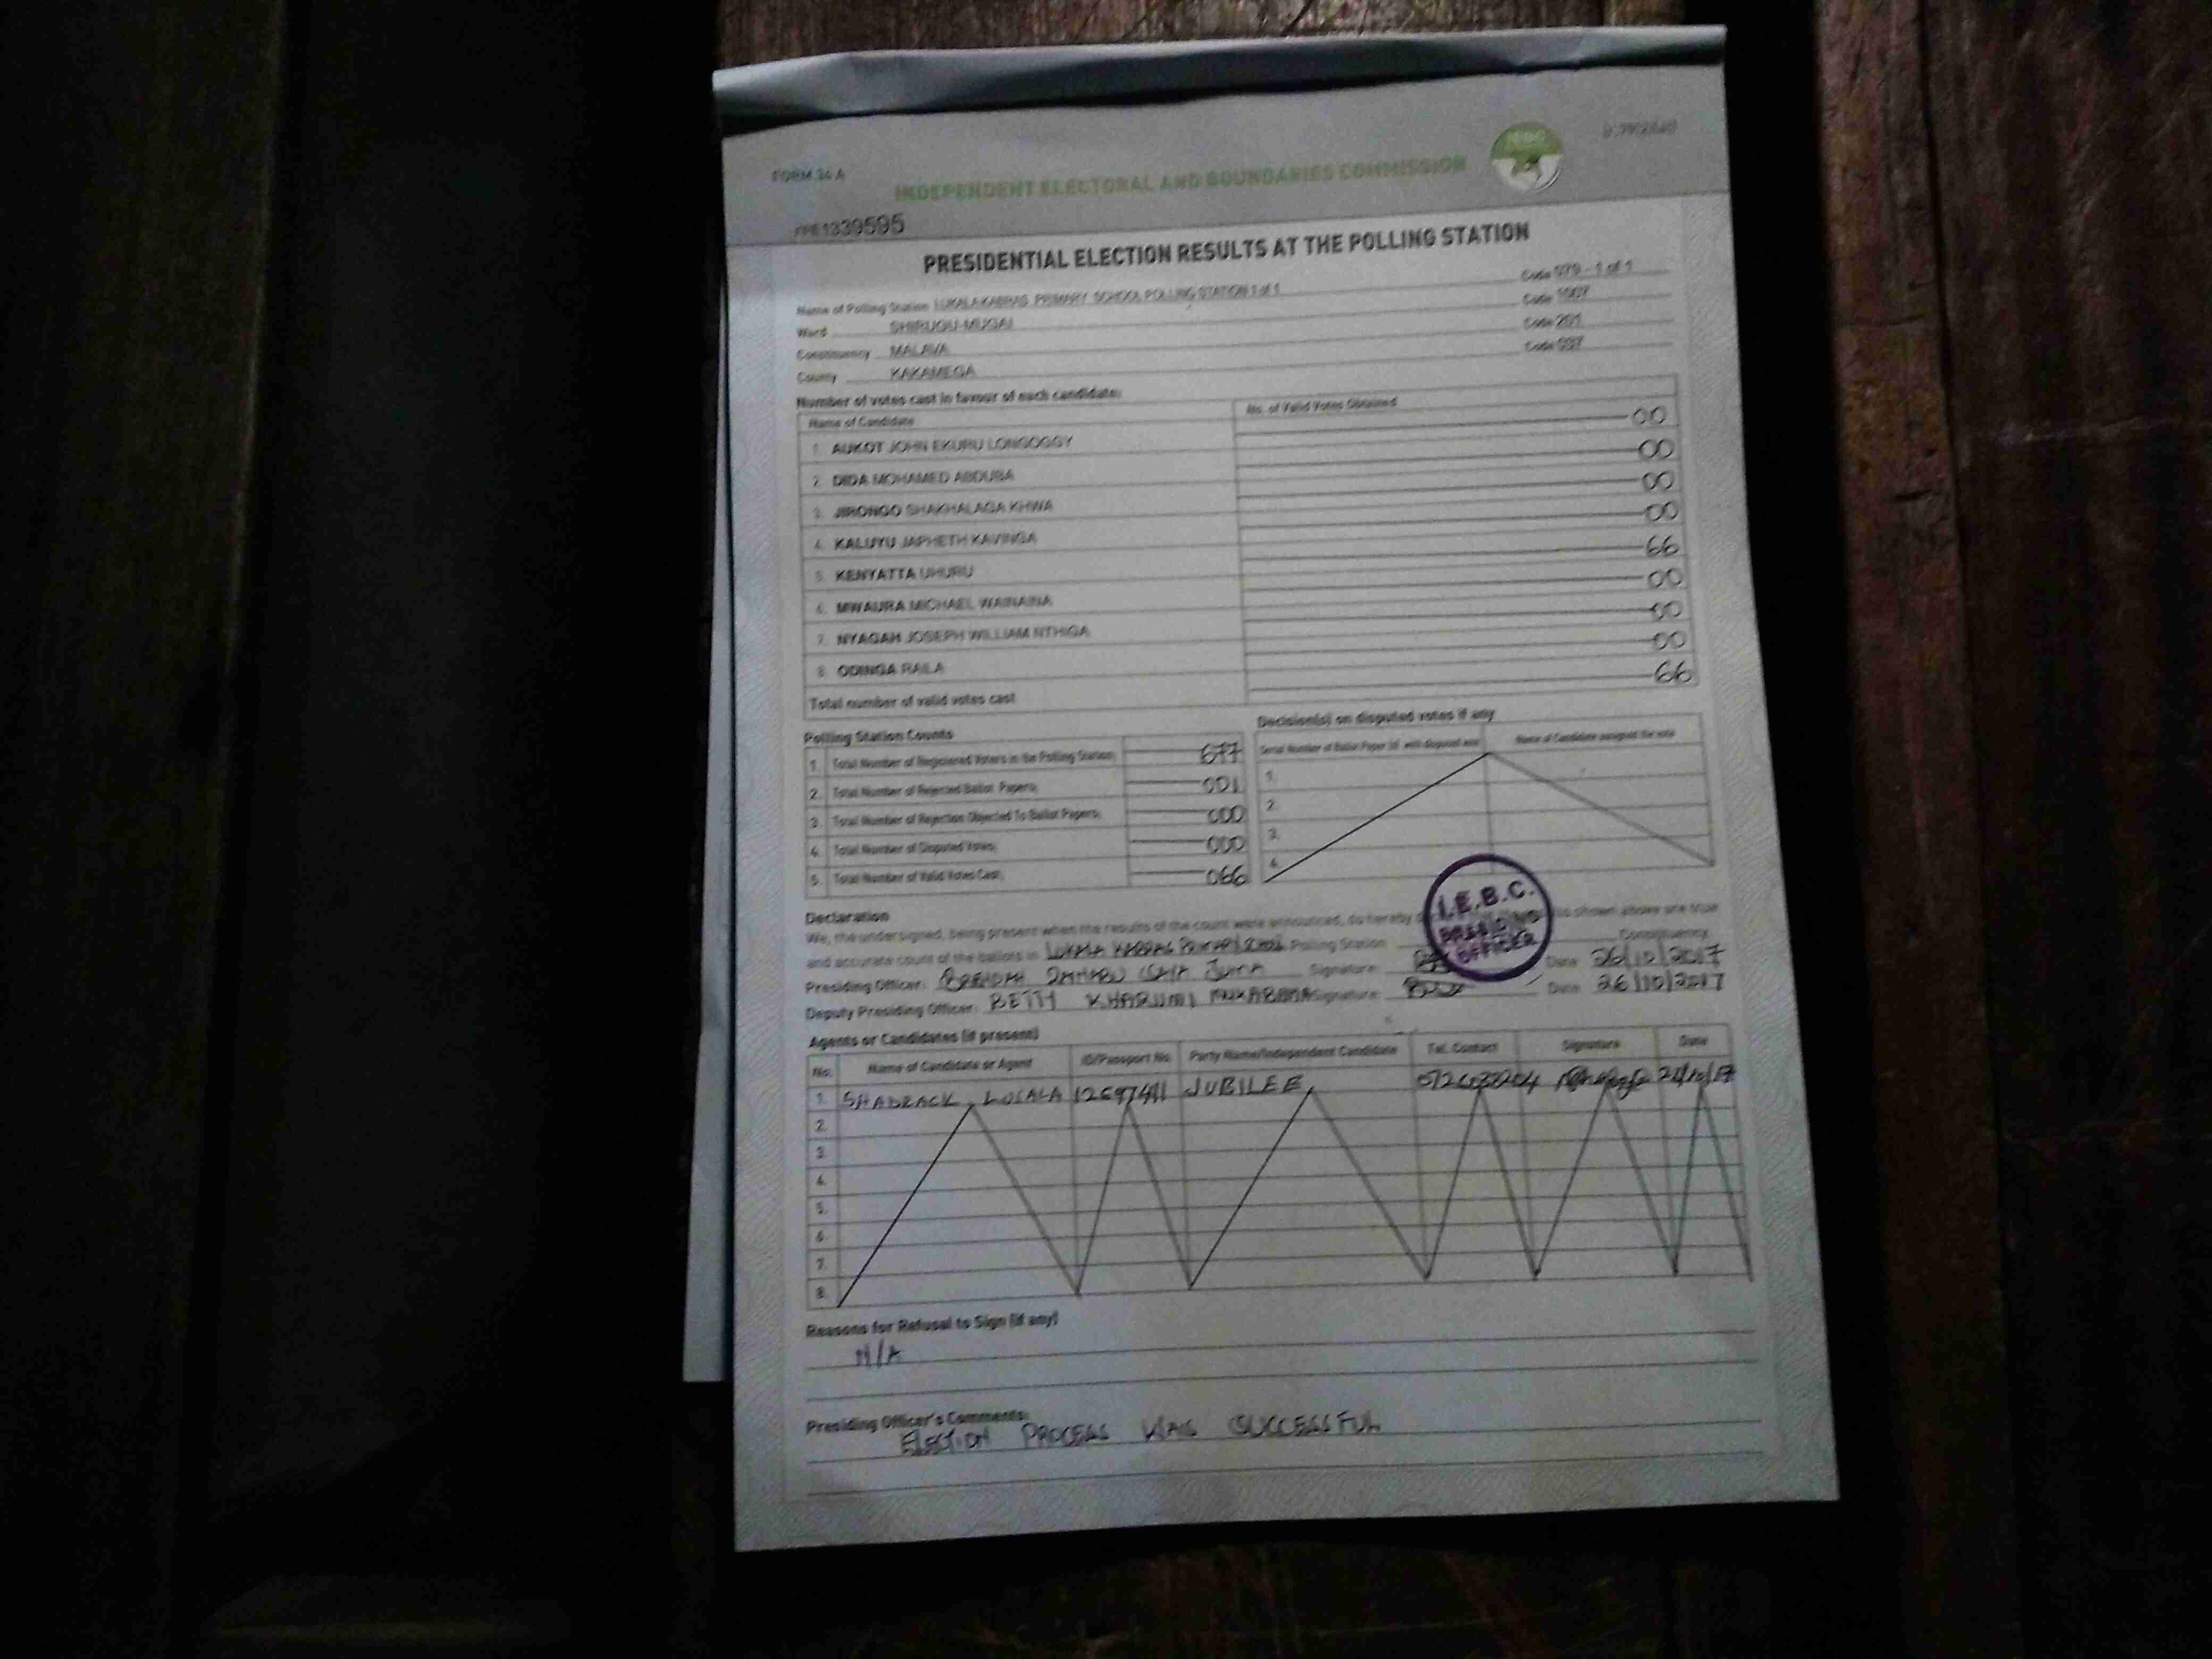 FORM 34 A
INDEPENDENT ELECTORAL AND BOUNDARIES COMMISSION
1339595
PRESIDENTIAL ELECTION RESULTS AT THE POLLING STATION
Name of Polling Station LUKALA KABRAS PRIMARY SCHOOL POLLING STATION 1 of 1 Code 079 - 1 of 1
Ward SHIRUGU-MUGAI Code 1007
Constituency MALAVA Code 201
County KAKAMEGA Code 037
Number of votes cast in favour of each candidate:
Name of Candidate No. of Valid Votes Obtained
1. AUKOT JOHN EKURU LONGOGGY 00
2. DIDA MOHAMED ABDUBA 00
3. JIRONGO SHAKHALAGA KHWA 00
4. KALUYU JAPHETH KAVINGA 00
5. KENYATTA UHURU 66
6. MWAURA MICHAEL WAINAINA 00
7. NYAGAH JOSEPH WILLIAM NTHIGA 00
8. ODINGA RAILA 00
Total number of valid votes cast 66
Polling Station Counts
1. Total Number of Registered Voters in the Polling Station; 677
2. Total Number of Rejected Ballot Papers; 001
3. Total Number of Rejection Objected To Ballot Papers; 000
4. Total Number of Disputed Votes; 000
5. Total Number of Valid Votes Cast; 066
Decision(s) on disputed votes if any
Serial Number of Ballot Paper (s) with disputed vote Name of Candidate assigned the vote
1.
2.
3.
4.
I.E.B.C.
PRESIDING
OFFICER
Declaration
We, the undersigned, being present when the results of the count were announced, do hereby shown above are true
and accurate count of the ballots in LUKALA KABRAS PRIMARY Polling Station Constituency
Presiding Officer: Signature: Date 26/10/2017
Deputy Presiding Officer: BETTY Signature: Date 26/10/2017
Agents or Candidates (if present)
No. Name of Candidate or Agent ID/Passport No. Party Name/Independent Candidate Tel. Contact Signature Date
1. SHADRACK JUBILEE
2.
3.
4.
5.
6.
7.
8.
Reasons for Refusal to Sign (if any)
N/A
Presiding Officer's Comments:
ELECTION PROCESS WAS SUCCESSFUL